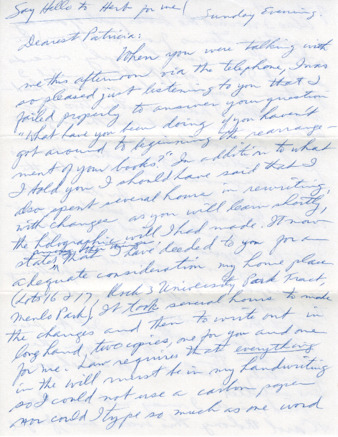 Say Hello to Herb for me! Sunday Evening.
Dearest Patricia:
When you were talking with
me this afternoon via the telephone, I was
so pleased just listening to you that I
failed properly to answer your question
"What have you been doing if you haven't
got around to beginning the rearrange-
ment of your books?" In addition to what
I told you I should have said that I
also spent several hours in rewriting,
with changes as you will learn shortly,
the holographic will I had made. It now
states, that I have deeded to you for a
adequate consideration my home place
(Lots 16 & 17, Block 3 University Park Tract,
Menlo Park). It took several hours to make
the changes and then to write out in
long hand, two copies, one for you and one
for me. Law requires that everything
in the will must be in my handwriting
so I could not use a carbon paper
nor could I type so much as one word